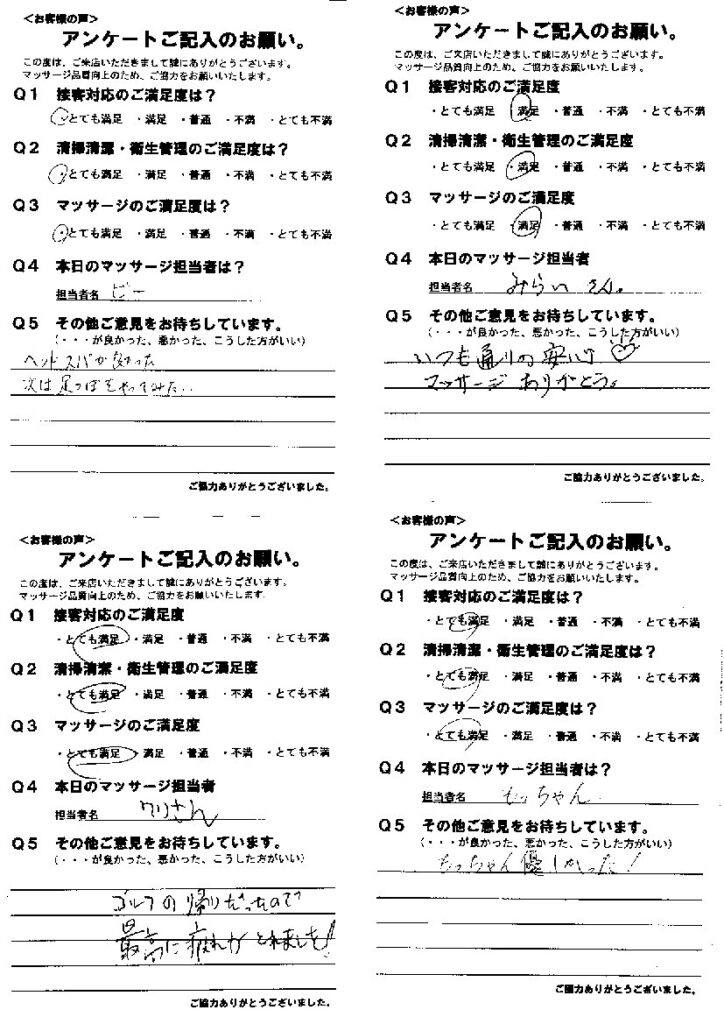 <お客様の声>
アンケートご記入のお願い。
この度は、ご来店いただきまして誠にありがとうございます。
マッサージ品質向上のため、ご協力をお願いいたします。
Q1 接客対応のご満足度は?
・とても満足 ・満足 ・普通 ・不満 ・とても不満
Q2 清掃清潔・衛生管理のご満足度は?
・とても満足 ・満足 ・普通 ・不満 ・とても不満
Q3 マッサージのご満足度は?
・とても満足 ・満足 ・普通 ・不満 ・とても不満
Q4 本日のマッサージ担当者は?
担当者名 ビー
Q5 その他ご意見をお待ちしています。
(・・・が良かった、悪かった、こうした方がいい)
ヘッドスパが良かった
次は足つぼをやってみたい..
ご協力ありがとうございました。
<お客様の声>
アンケートご記入のお願い。
この度は、ご来店いただきまして誠にありがとうございます。
マッサージ品質向上のため、ご協力をお願いいたします。
Q1 接客対応のご満足度
・とても満足 ・満足 ・普通 ・不満 ・とても不満
Q2 清掃清潔・衛生管理のご満足度
・とても満足 ・満足 ・普通 ・不満 ・とても不満
Q3 マッサージのご満足度
・とても満足 ・満足 ・普通 ・不満 ・とても不満
Q4 本日のマッサージ担当者
担当者名 みらいさん。
Q5 その他ご意見をお待ちしています。
(・・・が良かった、悪かった、こうした方がいい)
いつも通りの安い
マッサージありがとう。
ご協力ありがとうございました。
<お客様の声>
アンケートご記入のお願い。
この度は、ご来店いただきまして誠にありがとうございます。
マッサージ品質向上のため、ご協力をお願いいたします。
Q1 接客対応のご満足度
・とても満足 ・満足 ・普通 ・不満 ・とても不満
Q2 清掃清潔・衛生管理のご満足度
・とても満足 ・満足 ・普通 ・不満 ・とても不満
Q3 マッサージのご満足度
・とても満足 ・満足 ・普通 ・不満 ・とても不満
Q4 本日のマッサージ担当者
担当者名 クリさん
Q5 その他ご意見をお待ちしています。
(・・・が良かった、悪かった、こうした方がいい)
ゴルフの帰りだったので
最高に疲れがとれました!
ご協力ありがとうございました。
<お客様の声>
アンケートご記入のお願い。
この度は、ご来店いただきまして誠にありがとうございます。
マッサージ品質向上のため、ご協力をお願いいたします。
Q1 接客対応のご満足度は?
・とても満足 ・満足 ・普通 ・不満 ・とても不満
Q2 清掃清潔・衛生管理のご満足度は?
・とても満足 ・満足 ・普通 ・不満 ・とても不満
Q3 マッサージのご満足度は?
・とても満足 ・満足 ・普通 ・不満 ・とても不満
Q4 本日のマッサージ担当者は?
担当者名 もっちゃん
Q5 その他ご意見をお待ちしています。
(・・・が良かった、悪かった、こうした方がいい)
もっちゃん優しかった!
ご協力ありがとうございました。